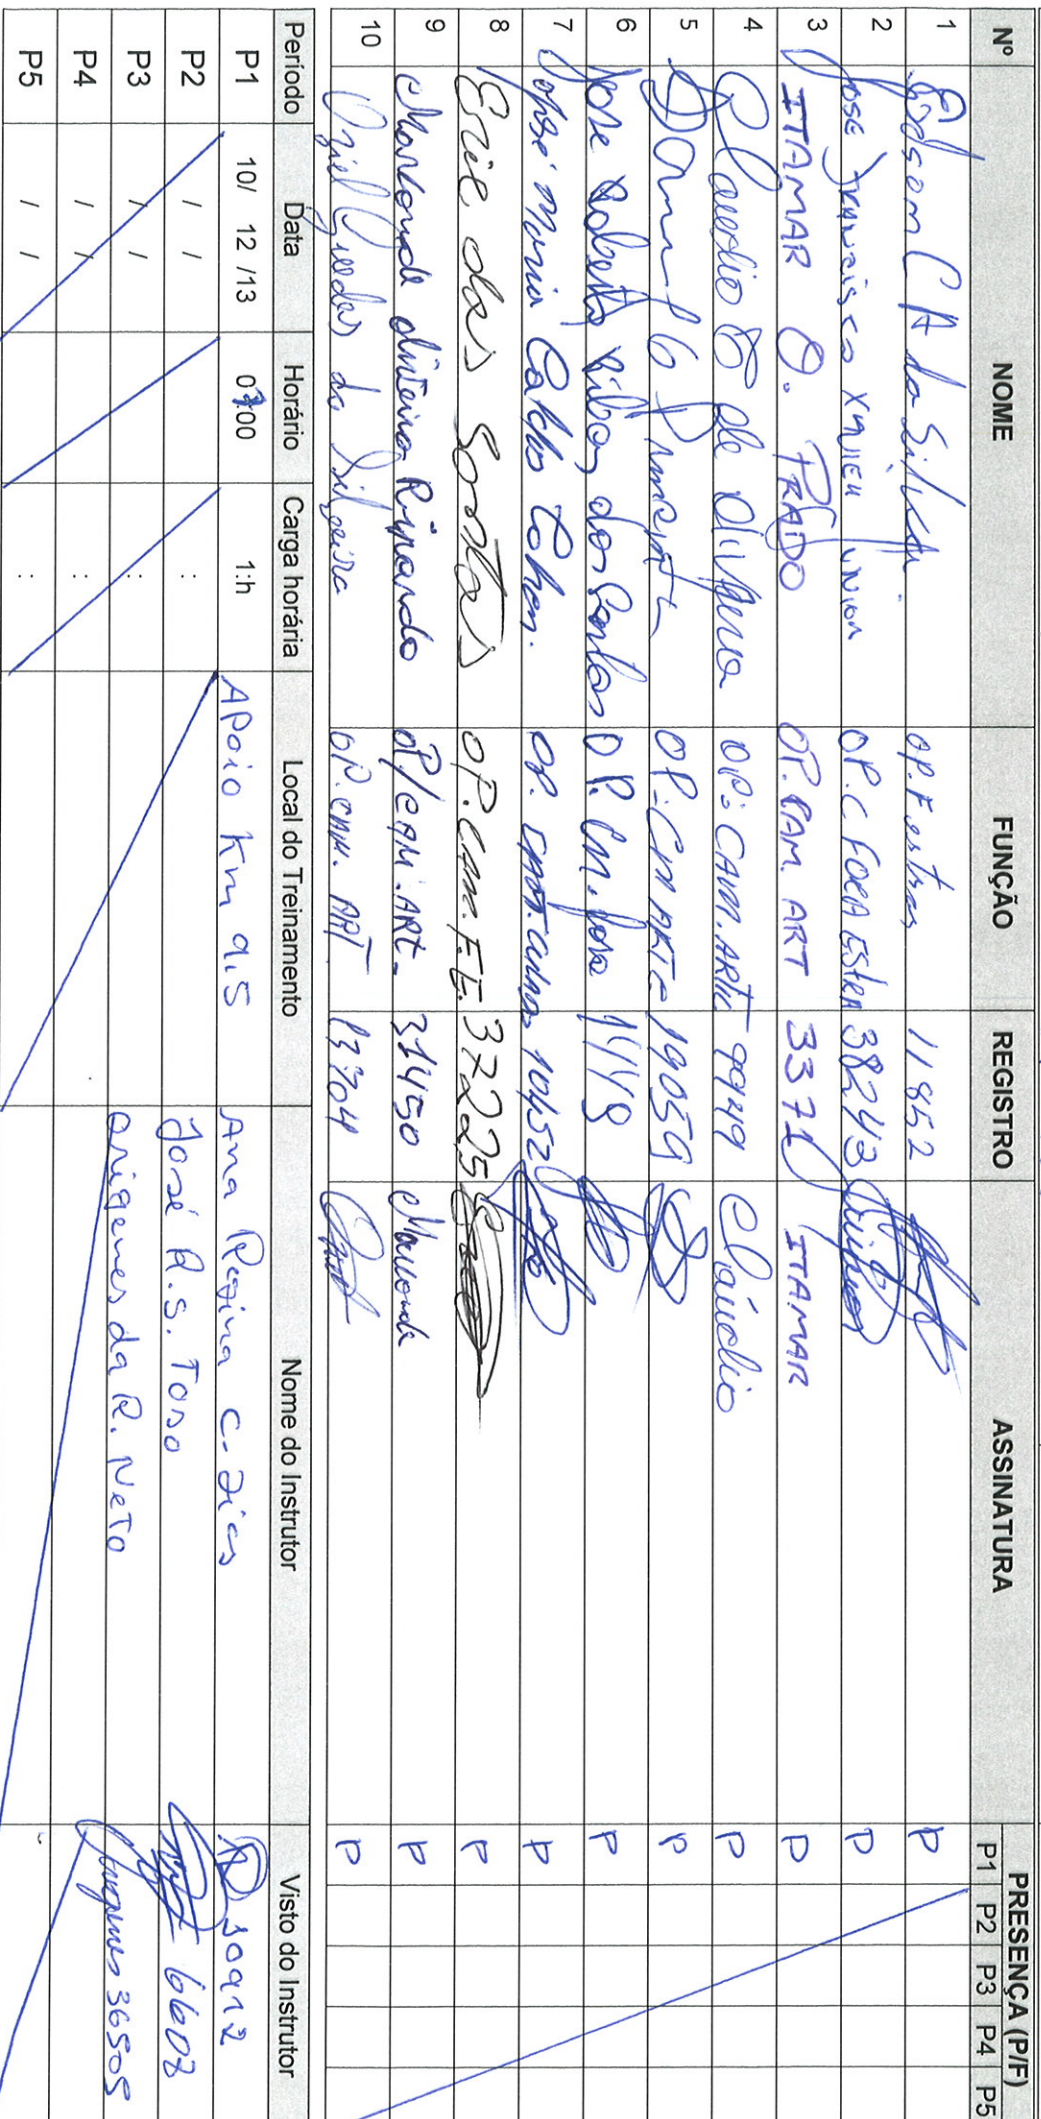 Nº NOME FUNÇÃO REGISTRO ASSINATURA PRESENÇA (P/F)
P1 P2 P3 P4 P5
1 Edson C A da Silva. OP. F. 11852 P
2 José Francisco Xavier Junior OP. C FORA ESTRA 38243 P
3 ITAMAR O. PRADO OP. CAM. ART 3371 ITAMAR P
4 Claudio de Oliveira OP: CAM. ARTIC 9949 Cláudio P
5 OP. CM ARTC 19059 P
6 José Roberto dos Santos OP. CM. fora P
7 José Maria Caldas Cohen. OP. 10452 P
8 Eric das Santos OP. CAM. F.E. 37225 P
9 Marconde Rigando OP/CAM. ART. 31450 Marconde P
10 Oziel Guedes da Silveira OP. CAM. ART 13704 P
Período Data Horário Carga horária Local do Treinamento Nome do Instrutor Visto do Instrutor
P1 10/ 12 /13 0700 1:h Apoio Km 9.5 Ana Regina C. Dias 30912
P2 / / : José R.S. Toso 6608
P3 / / : Origenes da R. Neto Origenes 36505
P4 / / :
P5 / / :